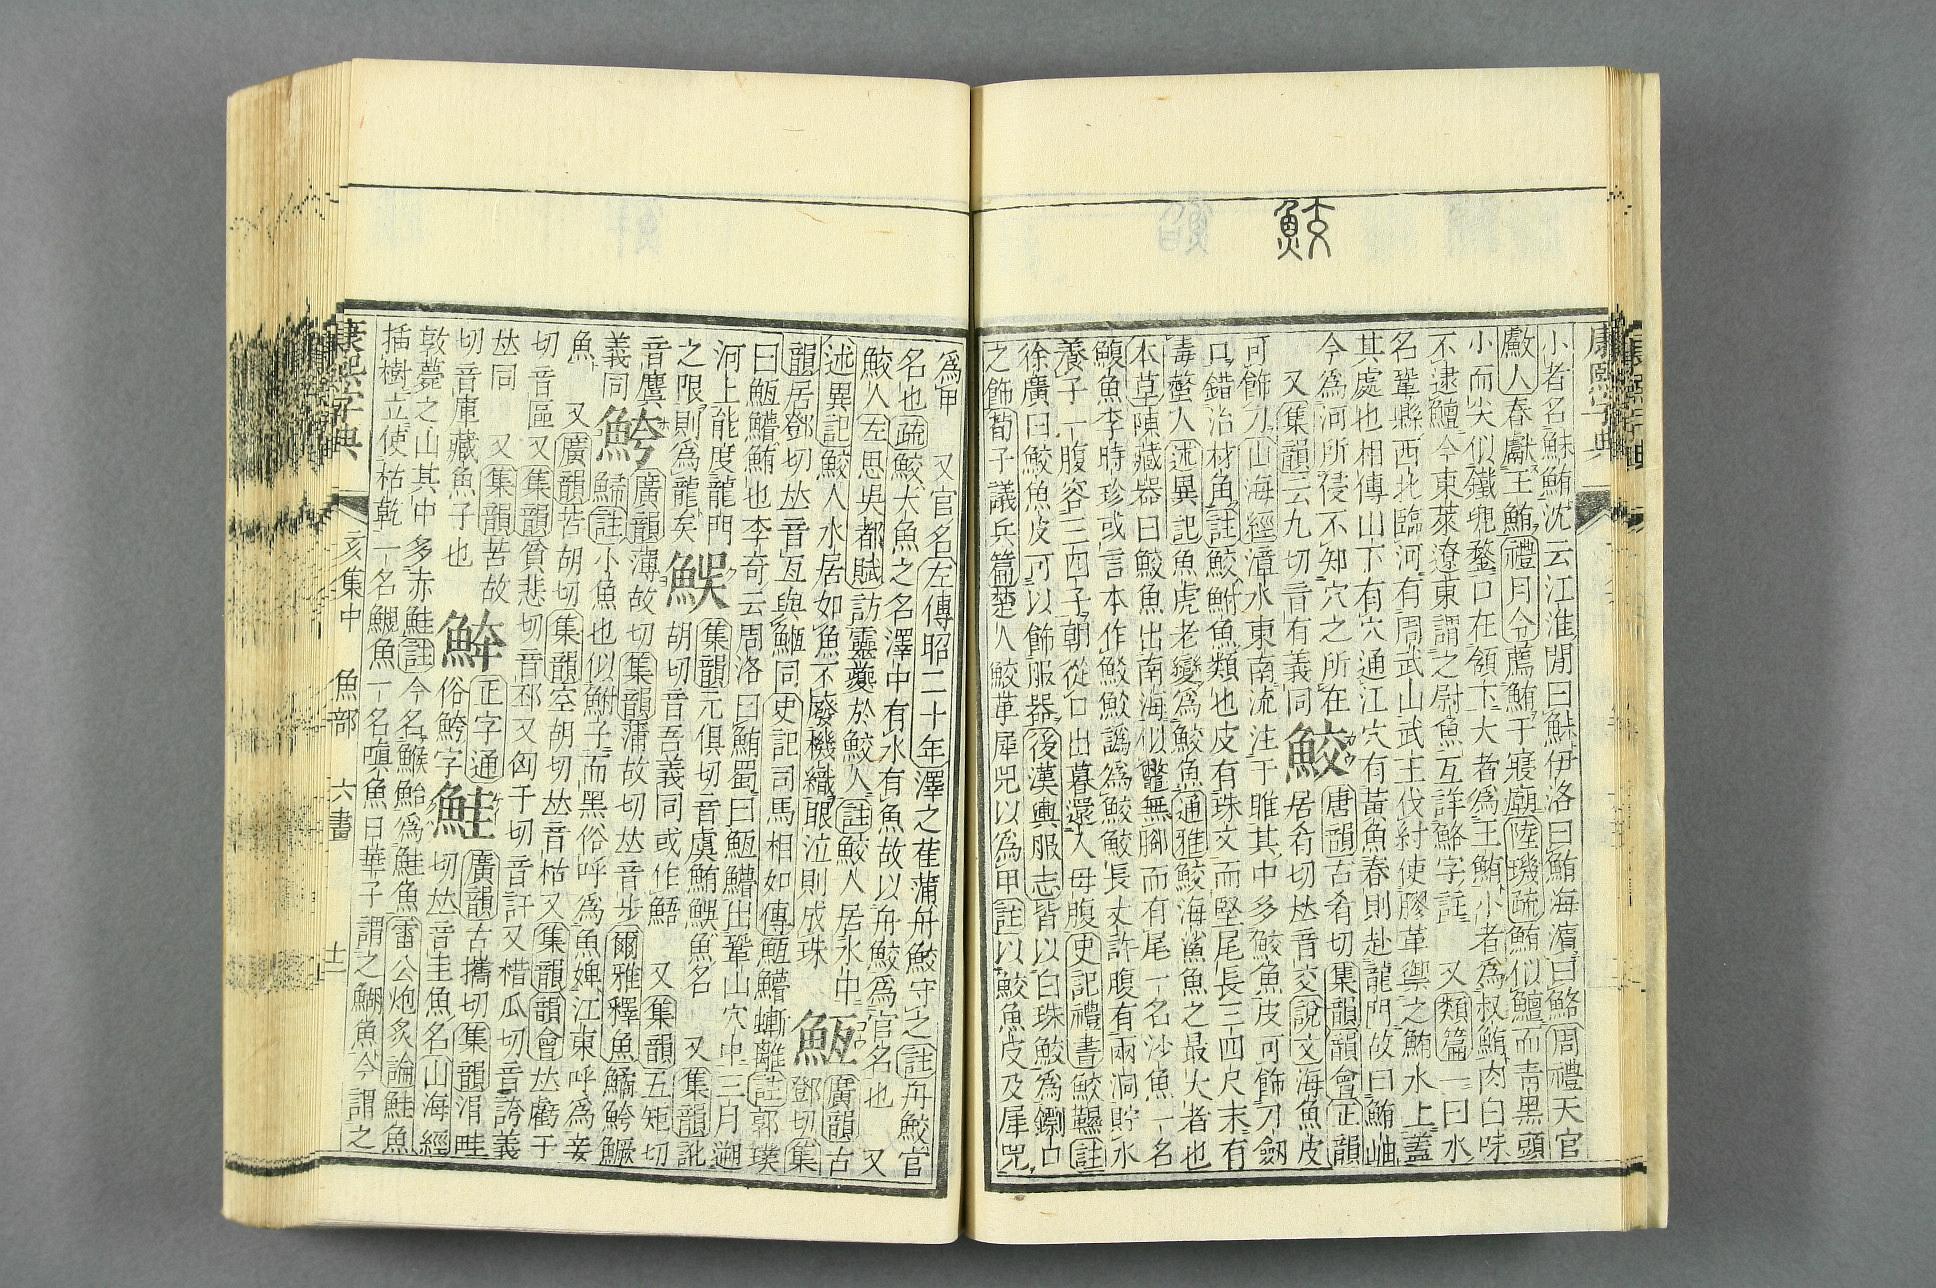 鮫
康熙字典
小者名鮇鮪沈云江淮閒曰鮛伊洛曰鮪海濱曰鮥周禮天官
獻人春獻王鮪禮月令薦鮪于寢廟陸璣疏鮪似鱣而靑黑頭
小而尖似鐵兜鍪口在頷下大者爲王鮪小者爲叔鮪肉白味
不逮鱣今東萊遼東謂之尉魚互詳鮥字註 又類篇一曰水
名鞏縣西北臨河有周武山武王伐紂使膠革禦之鮪水上蓋
其處也相傳山下有穴通江穴有黃魚春則赴龍門故曰鮪岫
今爲河所侵不知穴之所在 鮫 唐韻古肴切集韻韻會正韻
又集韻云九切音有義同 居肴切𠀤音交說文海魚皮
可飾刀山海經漳水東南流注于睢其中多鮫魚皮可飾刀劒
口錯治材角註鮫鮒魚類也皮有珠文而堅尾長三四尺末有
毒螫人述異記魚虎老變爲鮫魚通雅鮫海鯊魚之最大者也
本草陳藏器曰鮫魚出南海似鼈無腳而有尾一名沙魚一名
鰒魚李時珍或言本作鮫鮫譌爲鮫鮫長丈許腹有兩洞貯水
養子一腹容三四子朝從口出暮還入母腹史記禮書鮫韅註
徐廣曰鮫魚皮可以飾服器後漢輿服志皆以白珠鮫爲鐔口
之飾荀子議兵篇楚人鮫革犀兕以爲甲註以鮫魚皮及犀兕
爲甲 又官名左傳昭二十年澤之萑蒲舟鮫守之註舟鮫官
名也疏鮫大魚之名澤中有水有魚故以舟鮫爲官名也 又
鮫人左思吳都賦訪靈夔於鮫人註鮫人居水中
述異記鮫人水居如魚不廢機織眼泣則成珠 䱍 廣韻古
龍居鄧切𠀤音亙與䱭同史記司馬相如傳䱍䲛螹離註郭璞
曰䱍䲛鮪也李奇云周洛曰鮪蜀曰䱍䲛出鞏山穴中三月遡
河上能度龍門
之限則爲龍矣 䱌 集韻元俱切音虞鮪䱌魚名 又集韻訛
胡切音吾義同或作䱐 又集韻五矩切
音麌
義同 鮬 廣韻薄故切集韻蒲故切𠀤音步爾雅釋魚鱊鮬鱖
鯞註小魚也似鮒子而黑俗呼爲魚婢江東呼爲妾
魚 又廣韻苦胡切集韻空胡切𠀤音枯又集韻韻會𠀤虧于
切音區又集韻貧悲切音邳又匈于切音訏又楛瓜切音誇義
𠀤同 又集韻苦故
切音庫藏魚子也 䱁 正字通
俗鮬字 鮭 廣韻古攜切集韻涓畦
切𠀤音圭魚名山海經
敦薨之山其中多赤鮭註今名鯸鮐爲鮭魚雷公炮炙論鮭魚
插樹立使枯乾 一名鯢魚一名嗔魚日華子謂之鶘魚今謂之
康熙字典 亥集中 魚部 六畫 十二